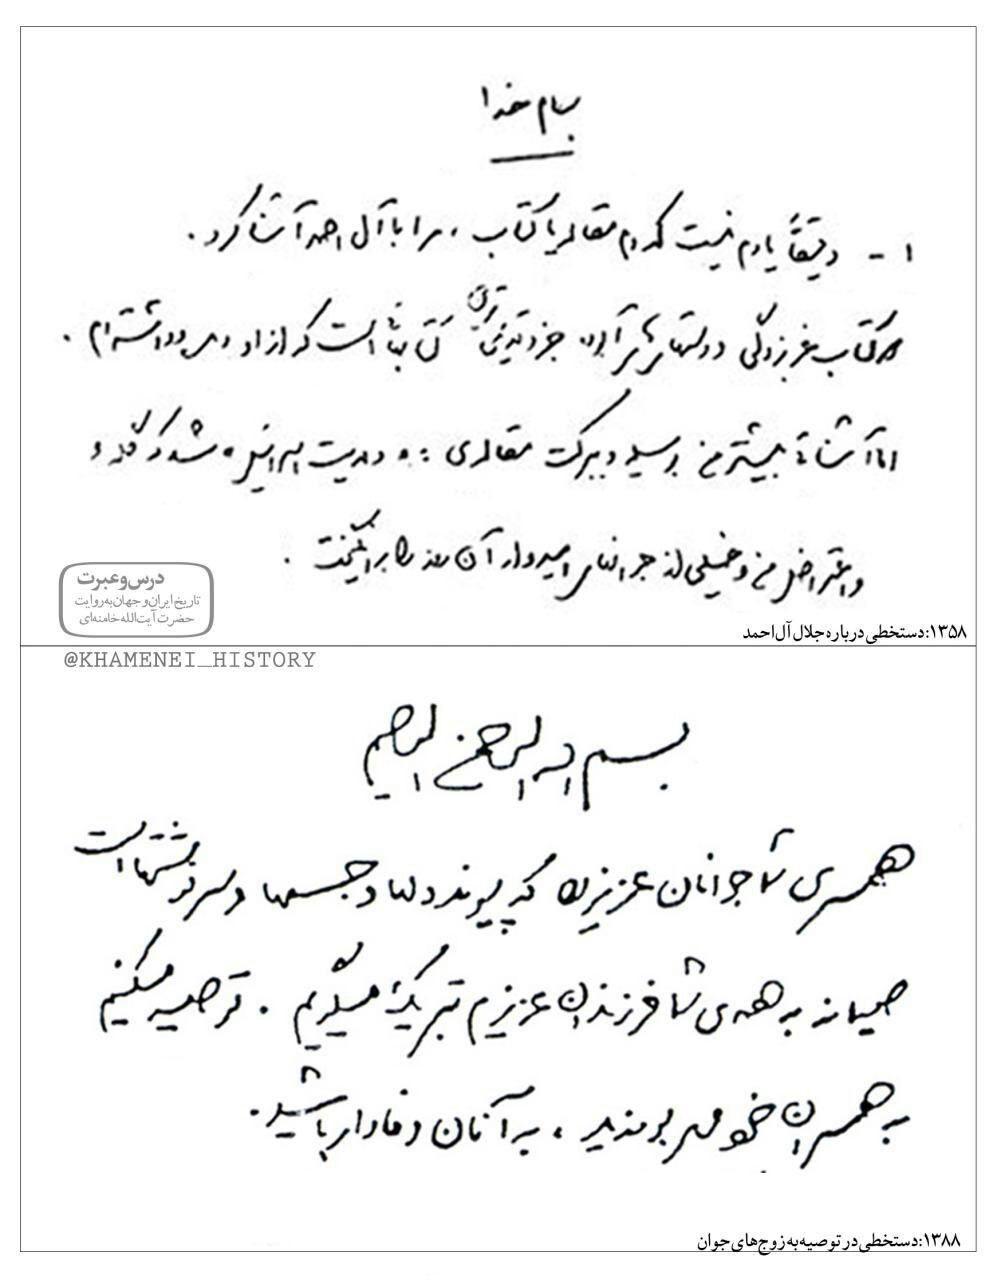 بسام خدا
۱ - دقیقاً یادم نیست کدام مقاله یا کتاب، مرا با آل احمد آشنا کرد.
دو کتاب غربزدگی و دستهای آلوده جزو قدیمی‌ترین کتابهائی است که از او دیده و داشته‌ام.
اما آشنائی بیشتر من بوسیله و ببرکت مقاله‌ی: «ولایت اسرائیل» شد که گله و
و اعتراض من و خیلی از جوانهای امیدوار آن روزگار را برانگیخت.
درس و عبرت
تاریخ ایران و جهان به روایت
حضرت آیت‌الله خامنه‌ای
۱۳۵۸: دستخطی درباره جلال آل‌احمد
@KHAMENEI_HISTORY
بسم الله الرحمن الرحیم
همسری شما جوانان عزیز را که پیوند دلها و جسمها و سرنوشتهاست
صمیمانه به همه‌ی شما فرزندان عزیزم تبریک میگویم. توصیه میکنم
به همسران خود مهر بورزید، به آنان وفادار باشید.
۱۳۸۸: دستخطی در توصیه به زوج‌های جوان